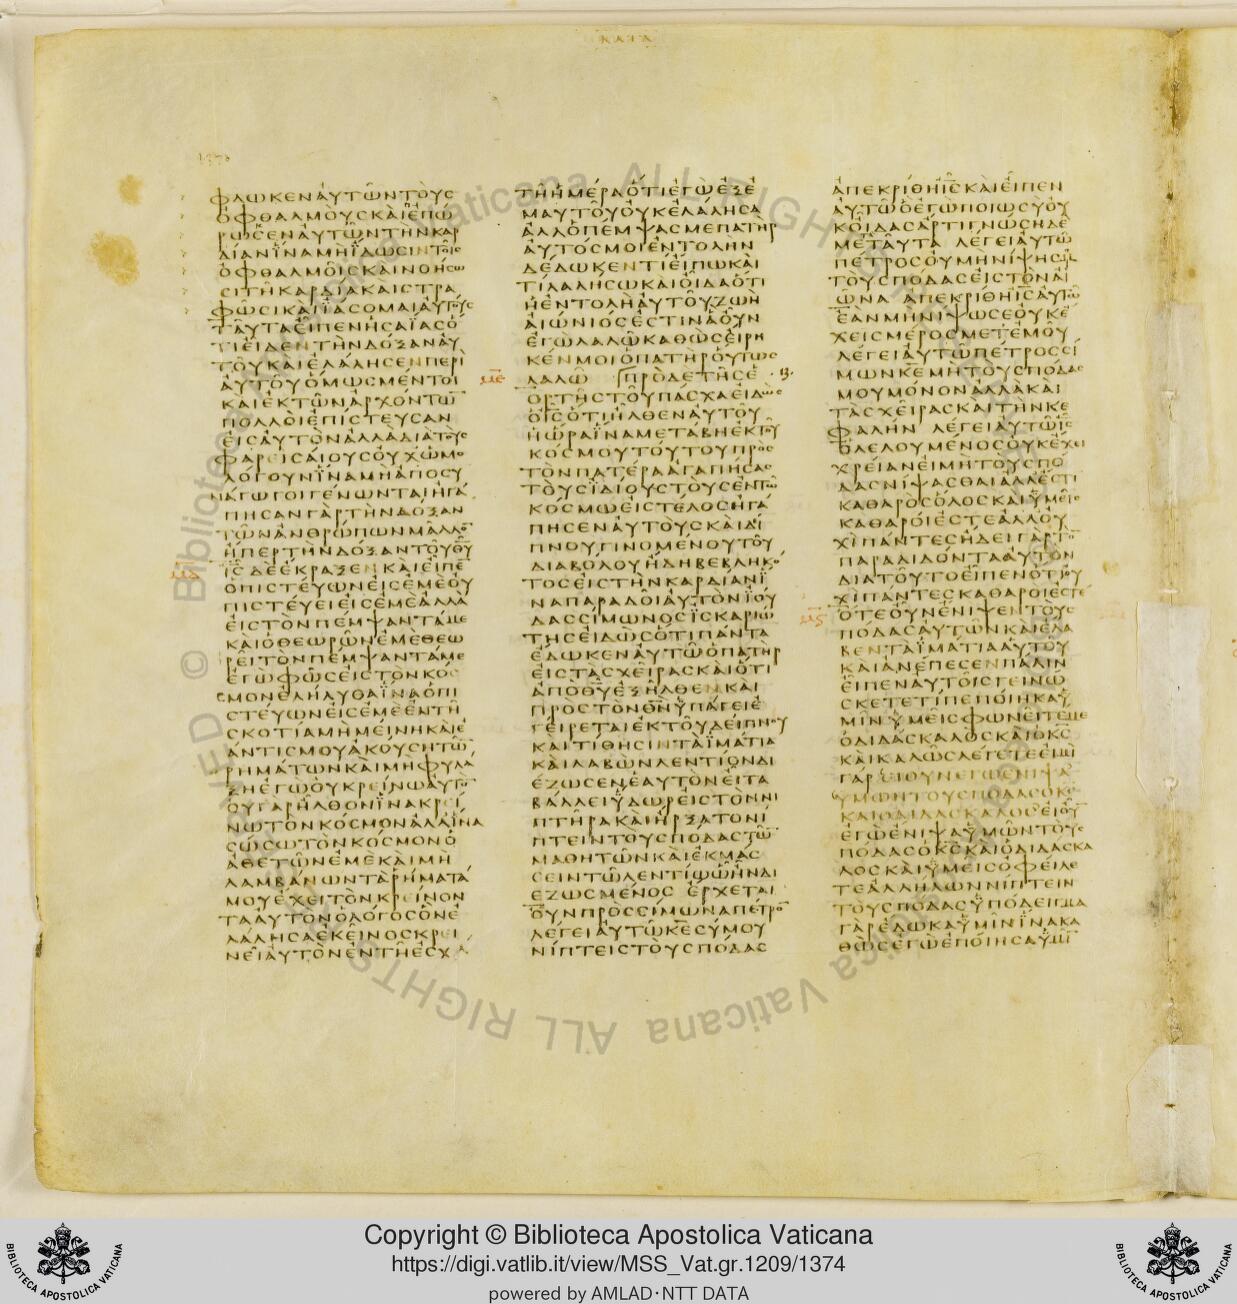 ΚΑΤΑ
ΦΛΩΚΕΝΑΥΤΩΝΤΟΥϹ
ΟΦΘΑΛΜΟΥϹΚΑΙΕΠΩ
ΡΩϹΕΝΑΥΤΩΝΤΗΝΚΑΡ
ΔΙΑΝΙΝΑΜΗΙΔΩϹΙΝΤΟΙϹ
ΟΦΘΑΛΜΟΙϹΚΑΙΝΟΗϹΩ
ϹΙΤΗΚΑΡΔΙΑΚΑΙϹΤΡΑ
ΦΩϹΙΚΑΙΙΑϹΟΜΑΙΑΥΤΟΥϹ
ΤΑΥΤΑΕΙΠΕΝΗϹΑΙΑϹΟ
ΤΙΕΙΔΕΝΤΗΝΔΟΞΑΝΑΥ
ΤΟΥΚΑΙΕΛΑΛΗϹΕΝΠΕΡΙ
ΑΥΤΟΥΟΜΩϹΜΕΝΤΟΙ
ΚΑΙΕΚΤΩΝΑΡΧΟΝΤΩ
ΠΟΛΛΟΙΕΠΙϹΤΕΥϹΑΝ
ΕΙϹΑΥΤΟΝΑΛΛΑΔΙΑΤΟΥϹ
ΦΑΡΕΙϹΑΙΟΥϹΟΥΧΩΜΟ
ΛΟΓΟΥΝΙΝΑΜΗΑΠΟϹΥ
ΝΑΓΩΓΟΙΓΕΝΩΝΤΑΙΗΓΑ
ΠΗϹΑΝΓΑΡΤΗΝΔΟΞΑΝ
ΤΩΝΑΝΘΡΩΠΩΝΜΑΛΛΟ
ΗΠΕΡΤΗΝΔΟΞΑΝΤΟΥΘΥ
ΙϹΔΕΕΚΡΑΞΕΝΚΑΙΕΙΠΕ
ΟΠΙϹΤΕΥΩΝΕΙϹΕΜΕΟΥ
ΠΙϹΤΕΥΕΙΕΙϹΕΜΕΑΛΛΑ
ΕΙϹΤΟΝΠΕΜΨΑΝΤΑΜΕ
ΚΑΙΟΘΕΩΡΩΝΕΜΕΘΕΩ
ΡΕΙΤΟΝΠΕΜΨΑΝΤΑΜΕ
ΕΓΩΦΩϹΕΙϹΤΟΝΚΟϹ
ΜΟΝΕΛΗΛΥΘΑΙΝΑΟΠΙ
ϹΤΕΥΩΝΕΙϹΕΜΕΕΝΤΗ
ϹΚΟΤΙΑΜΗΜΕΙΝΗΚΑΙΕ
ΑΝΤΙϹΜΟΥΑΚΟΥϹΗΤΩ
ΡΗΜΑΤΩΝΚΑΙΜΗΦΥΛΑ
ΞΗΕΓΩΟΥΚΡΕΙΝΩΑΥΤΟ
ΟΥΓΑΡΗΛΘΟΝΙΝΑΚΡΕΙ
ΝΩΤΟΝΚΟϹΜΟΝΑΛΛΙΝΑ
ϹΩϹΩΤΟΝΚΟϹΜΟΝΟ
ΑΘΕΤΩΝΕΜΕΚΑΙΜΗ
ΛΑΜΒΑΝΩΝΤΑΡΗΜΑΤΑ
ΜΟΥΕΧΕΙΤΟΝΚΡΕΙΝΟΝ
ΤΑΑΥΤΟΝΟΛΟΓΟϹΟΝΕ
ΛΑΛΗϹΑΕΚΕΙΝΟϹΚΡΕΙ
ΝΕΙΑΥΤΟΝΕΝΤΗΕϹΧΑ
ΤΗΗΜΕΡΑΟΤΙΕΓΩΕΞΕ
ΜΑΥΤΟΥΟΥΚΕΛΑΛΗϹΑ
ΑΛΛΟΠΕΜΨΑϹΜΕΠΑΤΗΡ
ΑΥΤΟϹΜΟΙΕΝΤΟΛΗΝ
ΔΕΔΩΚΕΝΤΙΕΙΠΩΚΑΙ
ΤΙΛΑΛΗϹΩΚΑΙΟΙΔΑΟΤΙ
ΗΕΝΤΟΛΗΑΥΤΟΥΖΩΗ
ΑΙΩΝΙΟϹΕϹΤΙΝΑΟΥΝ
ΕΓΩΛΑΛΩΚΑΘΩϹΕΙΡΗ
ΚΕΝΜΟΙΟΠΑΤΗΡΟΥΤΩϹ
ΜΕ ΛΑΛΩ ΠΡΟΔΕΤΗϹΕ 13.
ΟΡΤΗϹΤΟΥΠΑϹΧΑΕΙΔΩϹ
ΟΙϹΟΤΙΗΛΘΕΝΑΥΤΟΥ
ΗΩΡΑΙΝΑΜΕΤΑΒΗΕΚΤΟΥ
ΚΟϹΜΟΥΤΟΥΤΟΥΠΡΟϹ
ΤΟΝΠΑΤΕΡΑΑΓΑΠΗϹΑϹ
ΤΟΥϹΙΔΙΟΥϹΤΟΥϹΕΝΤΩ
ΚΟϹΜΩΕΙϹΤΕΛΟϹΗΓΑ
ΠΗϹΕΝΑΥΤΟΥϹΚΑΙΔΙ
ΠΝΟΥΓΙΝΟΜΕΝΟΥΤΟΥ
ΔΙΑΒΟΛΟΥΗΔΗΒΕΒΛΗΚΟ
ΤΟϹΕΙϹΤΗΝΚΑΡΔΙΑΝΙ
ΝΑΠΑΡΑΔΟΙΑΥΤΟΝΙΟΥ
ΔΑϹϹΙΜΩΝΟϹΙϹΚΑΡΙΩ
ΤΗϹΕΙΔΩϹΟΤΙΠΑΝΤΑ
ΕΔΩΚΕΝΑΥΤΩΟΠΑΤΗΡ
ΕΙϹΤΑϹΧΕΙΡΑϹΚΑΙΟΤΙ
ΑΠΟΘΥΕΞΗΛΘΕΝΚΑΙ
ΠΡΟϹΤΟΝΘΝΥΠΑΓΕΙΕ
ΓΕΙΡΕΤΑΙΕΚΤΟΥΔΕΙΠΝΟΥ
ΚΑΙΤΙΘΗϹΙΝΤΑΙΜΑΤΙΑ
ΚΑΙΛΑΒΩΝΛΕΝΤΙΟΝΔΙ
ΕΖΩϹΕΝΕΑΥΤΟΝΕΙΤΑ
ΒΑΛΛΕΙΥΔΩΡΕΙϹΤΟΝΝΙ
ΠΤΗΡΑΚΑΙΗΡΞΑΤΟΝΙ
ΠΤΕΙΝΤΟΥϹΠΟΔΑϹΤΩ
ΜΑΘΗΤΩΝΚΑΙΕΚΜΑϹ
ϹΕΙΝΤΩΛΕΝΤΙΩΩΗΝΔΙ
ΕΖΩϹΜΕΝΟϹ ΕΡΧΕΤΑΙ
ΟΥΝΠΡΟϹϹΙΜΩΝΑΠΕΤΡΟ
ΛΕΓΕΙΑΥΤΩΚΕϹΥΜΟΥ
ΝΙΠΤΕΙϹΤΟΥϹΠΟΔΑϹ
ΑΠΕΚΡΙΘΗΙϹΚΑΙΕΙΠΕΝ
ΑΥΤΩΟΕΓΩΠΟΙΩϹΥΟΥ
ΚΟΙΔΑϹΑΡΤΙΓΝΩϹΗΔΕ
ΜΕΤΑΥΤΑ ΛΕΓΕΙΑΥΤΩ
ΠΕΤΡΟϹΟΥΜΗΝΙΨΗϹ
ΤΟΥϹΠΟΔΑϹΕΙϹΤΟΝΑΙ
ΩΝΑ ΑΠΕΚΡΙΘΗΙϹΑΥΤΩ
ΕΑΝΜΗΝΙΨΩϹΕΟΥΚΕ
ΧΕΙϹΜΕΡΟϹΜΕΤΕΜΟΥ
ΛΕΓΕΙΑΥΤΩΠΕΤΡΟϹϹΙ
ΜΩΝΚΕΜΗΤΟΥϹΠΟΔΑϹ
ΜΟΥΜΟΝΟΝΑΛΛΑΚΑΙ
ΤΑϹΧΕΙΡΑϹΚΑΙΤΗΝΚΕ
ΦΑΛΗΝ ΛΕΓΕΙΑΥΤΩΙϹ
ΟΛΕΛΟΥΜΕΝΟϹΟΥΚΕΧΕΙ
ΧΡΕΙΑΝΕΙΜΗΤΟΥϹΠΟ
ΔΑϹΝΙΨΑϹΘΑΙΑΛΛΕϹΤΙ
ΚΑΘΑΡΟϹΟΛΟϹΚΑΙΥΜΕΙϹ
ΚΑΘΑΡΟΙΕϹΤΕΑΛΛΟΥ
ΧΙΠΑΝΤΕϹΗΔΕΙΓΑΡΤΟ
ΠΑΡΑΔΙΔΟΝΤΑΑΥΤΟΝ
ΔΙΑΤΟΥΤΟΕΙΠΕΝΟΤΙΟΥ
ΧΙΠΑΝΤΕϹΚΑΘΑΡΟΙΕϹΤΕ
ΜϚ ΟΤΕΟΥΝΕΝΙΨΕΝΤΟΥϹ
ΠΟΔΑϹΑΥΤΩΝΚΑΙΕΛΑ
ΒΕΝΤΑΙΜΑΤΙΑΑΥΤΟΥ
ΚΑΙΑΝΕΠΕϹΕΝΠΑΛΙΝ
ΕΙΠΕΝΑΥΤΟΙϹΓΕΙΝΩ
ϹΚΕΤΕΤΙΠΕΠΟΙΗΚΑΥ
ΜΙΝΥΜΕΙϹΦΩΝΕΙΤΕΜΕ
ΟΔΙΔΑϹΚΑΛΟϹΚΑΙΟΚϹ
ΚΑΙΚΑΛΩϹΛΕΓΕΤΕΕΙΜΙ
ΓΑΡΕΙΟΥΝΕΓΩΕΝΙΨΑ
ΥΜΩΝΤΟΥϹΠΟΔΑϹΟΚϹ
ΚΑΙΟΔΙΔΑϹΚΑΛΟϹΕΙΟΥ
ΕΓΩΕΝΙΨΑΥΜΩΝΤΟΥϹ
ΠΟΔΑϹΟΚϹΚΑΙΟΔΙΔΑϹΚΑ
ΛΟϹΚΑΙΥΜΕΙϹΟΦΕΙΛΕ
ΤΕΑΛΛΗΛΩΝΝΙΠΤΕΙΝ
ΤΟΥϹΠΟΔΑϹΥΠΟΔΕΙΓΜΑ
ΓΑΡΕΔΩΚΑΥΜΙΝΙΝΑΚΑ
ΘΩϹΕΓΩΕΠΟΙΗϹΑΥΜΙ
Copyright © Biblioteca Apostolica Vaticana
https://digi.vatlib.it/view/MSS_Vat.gr.1209/1374
powered by AMLAD·NTT DATA
BIBLIOTECA APOSTOLICA VATICANA
BIBLIOTECA APOSTOLICA VATICANA